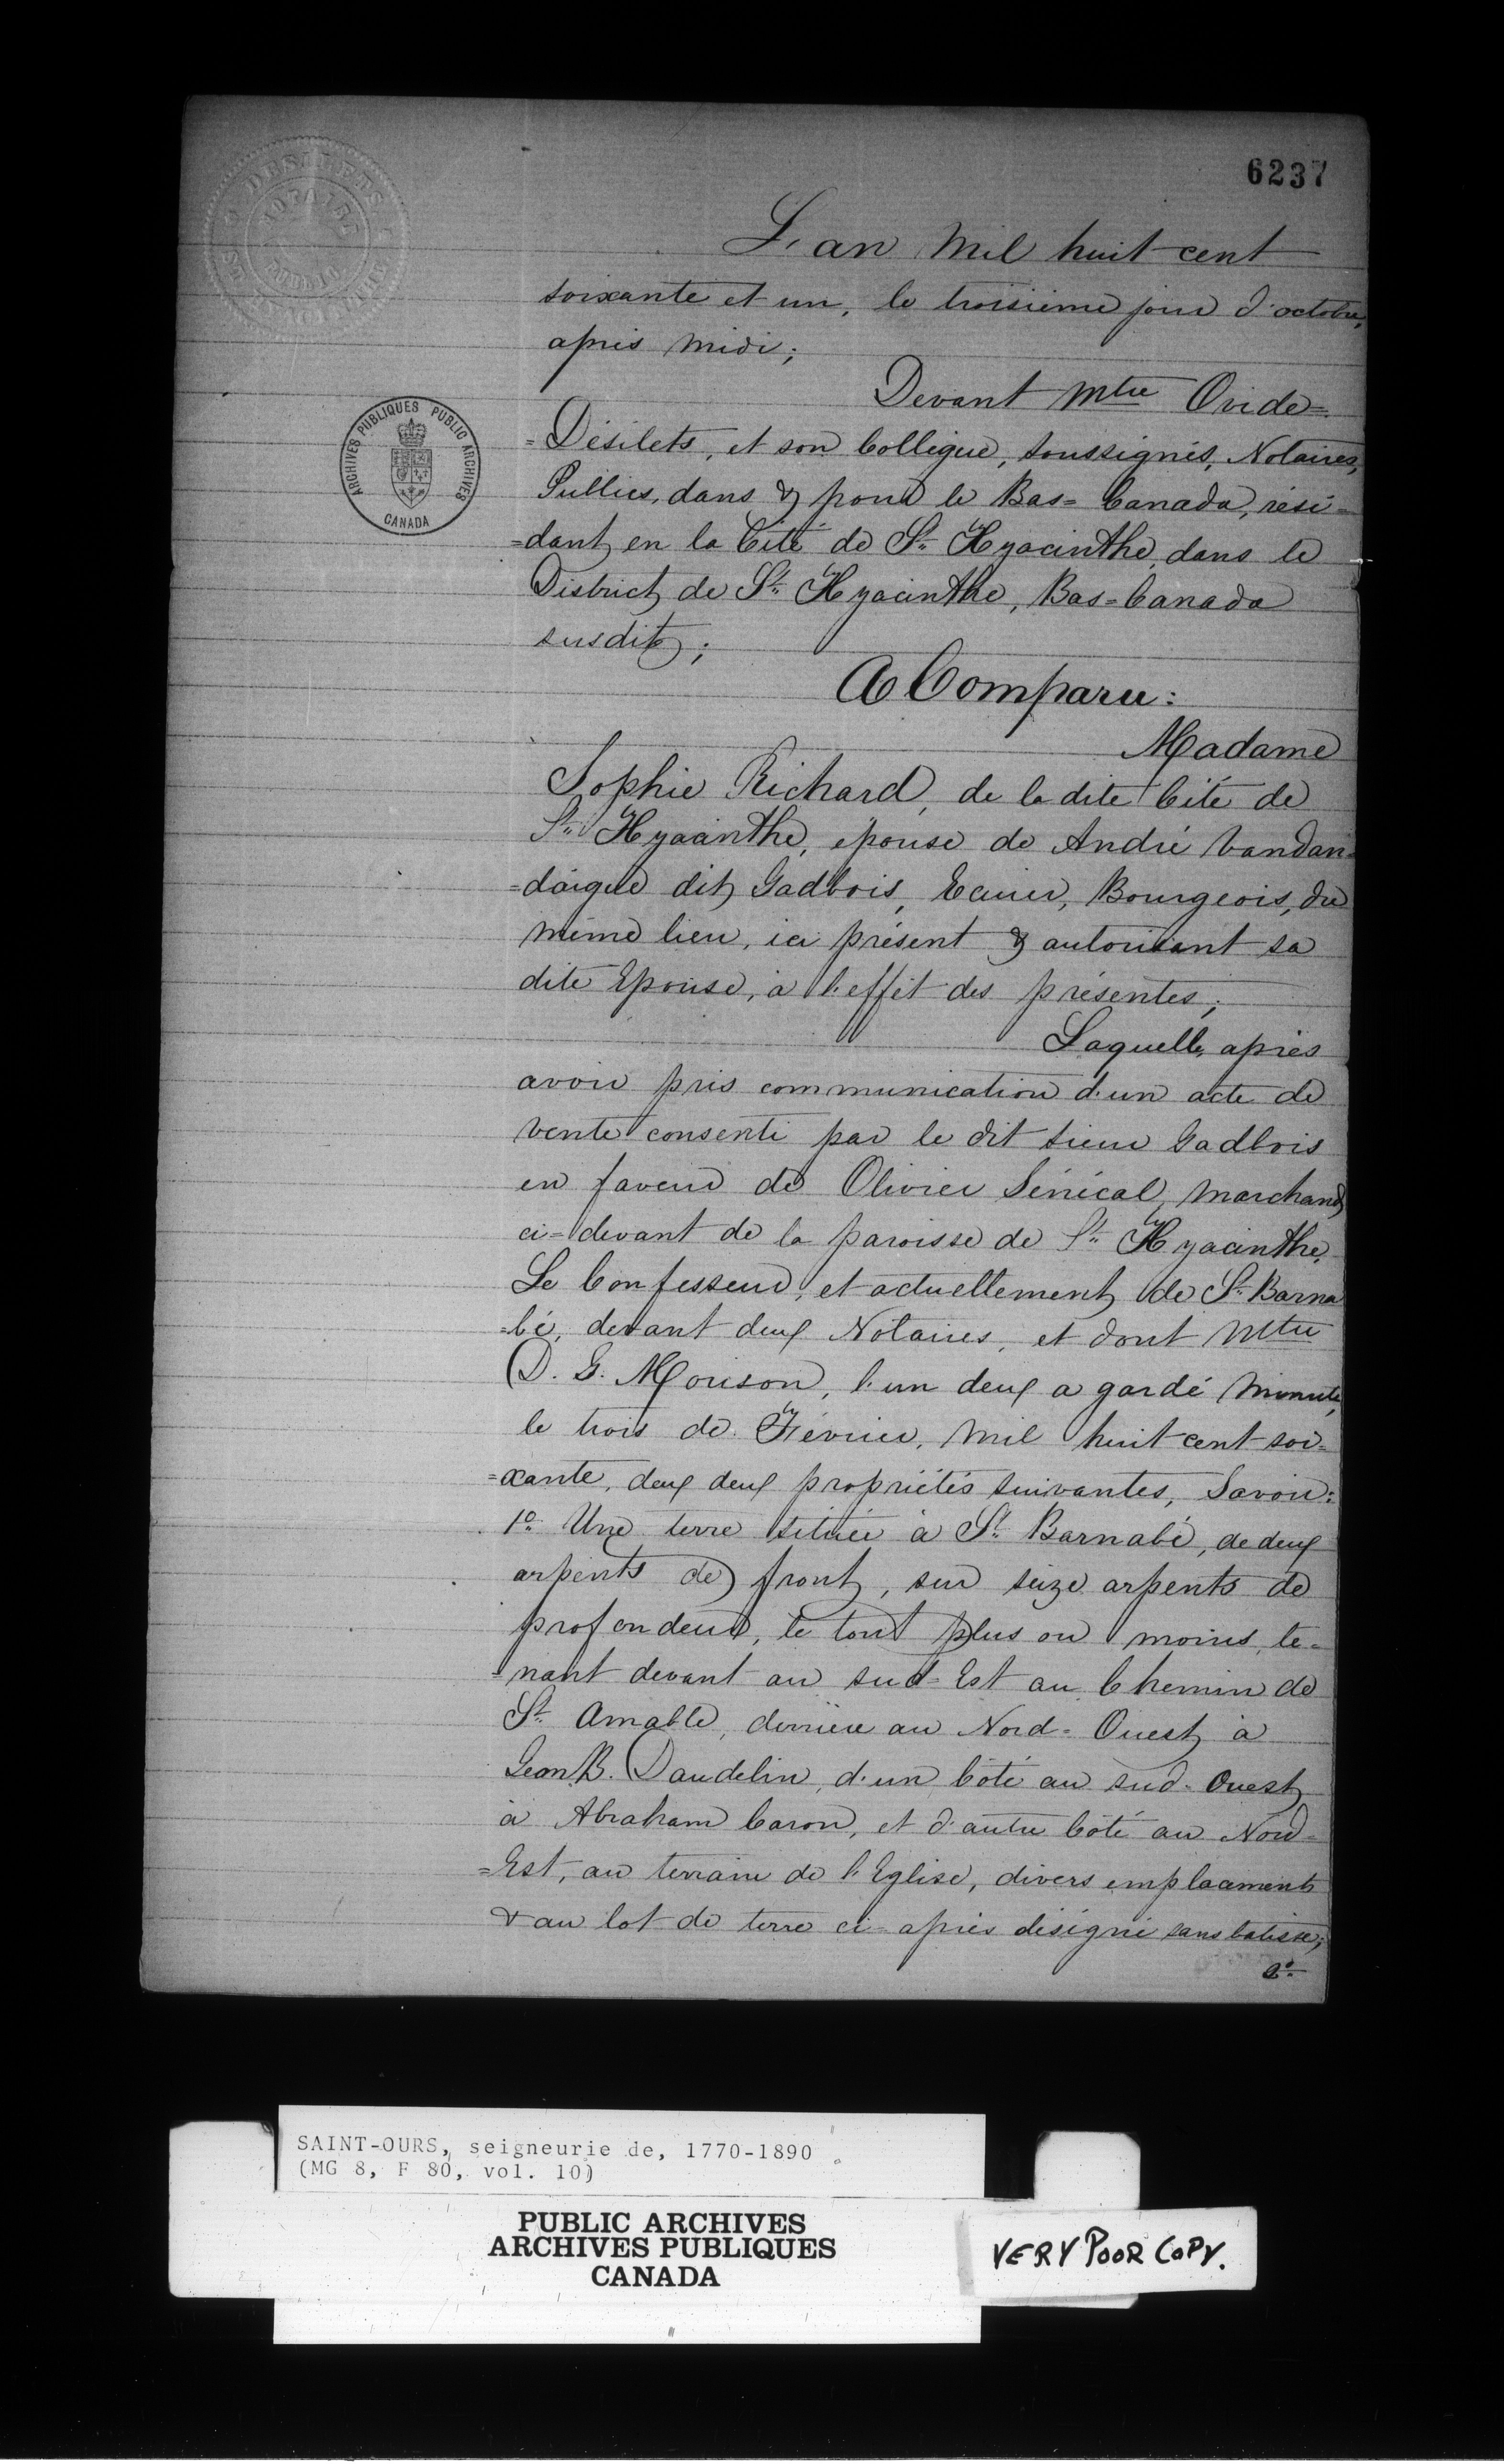 6237
L'an mil huit cent
soixante et un, le troisième jour d'octobre,
après midi;
Devant Mtre Ovide=
=Désilets, et son Collègue, soussignés, Notaires,
Publics, dans & pour le Bas=Canada, rési=
=dant en la Cité de St. Hyacinthe, dans le
District de St. Hyacinthe, Bas=Canada
susdit;
A Comparu:
Madame
Sophie Richard, de la dite Cité de
St. Hyacinthe, épouse de André Vandan=
=daigue dit Gadbois, Ecuier, Bourgeois, du
même lieu, ici présent & autorisant sa
dite Epouse, à l'effet des présentes;
Laquelle, après
avoir pris communication d'un acte de
vente consenti par le dit sieur Gadbois
en faveur de Olivier Sénécal, marchand
ci=devant de la paroisse de St. Hyacinthe,
Le Confesseur, et actuellement de St. Barna
=bé, devant deux Notaires, et dont Mtre
D. G. Morison, l'un deux a gardé minute,
le trois de Février, mil huit cent soi=
=xante, deux deux propriétés suivantes, Savoir:
1o. Une terre située à St. Barnabé, de deux
arpents de front, sur seize arpents de
profondeur, le tout plus ou moins, te=
=nant devant au sud=Est au Chemin de
St. Amable, derrière au Nord=Ouest à
Jean B. Daudelin, d'un côté au sud=Ouest
à Abraham Caron, et d'autre côté au Nord=
=Est, au terrain de l'Eglise, divers emplacements
& au lot de terre ci=après désigné sans batisse;
2o.
ARCHIVES PUBLIQUES PUBLIC ARCHIVES
CANADA
SAINT-OURS, seigneurie de, 1770-1890
(MG 8, F 80, vol. 10)
PUBLIC ARCHIVES
ARCHIVES PUBLIQUES
CANADA
VERY POOR COPY.